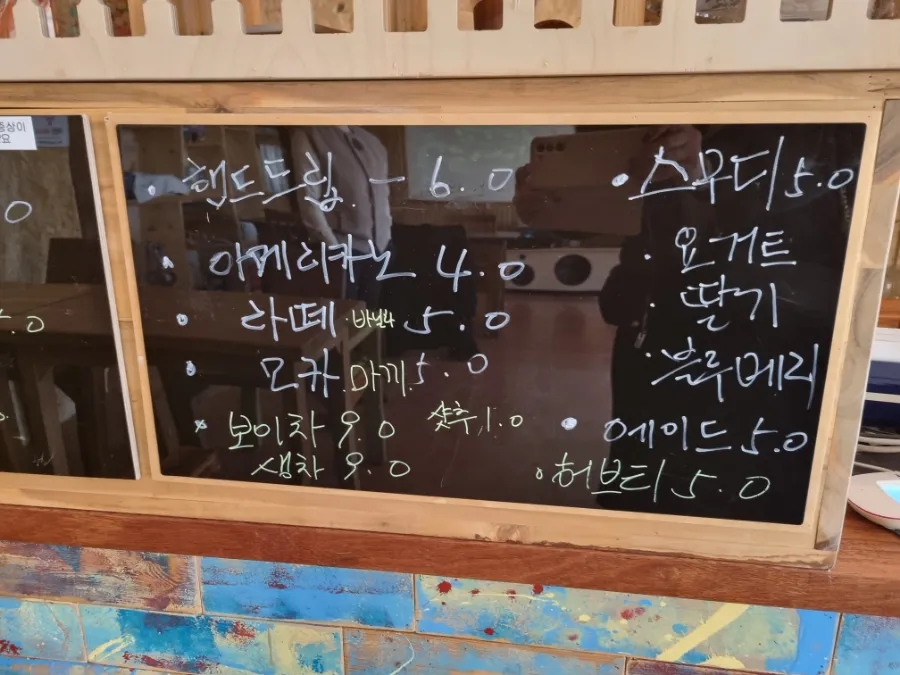 증상이
요
0
.0
핸드드립. - 6.0
아메리카노 4.0
라떼 ·바닐라 5.0
모카 마끼 5.0
보이차 9.0 샷추 1.0
생차 9.0
스무디 5.0
요거트
딸기
블루베리
에이드 5.0
허브티 5.0